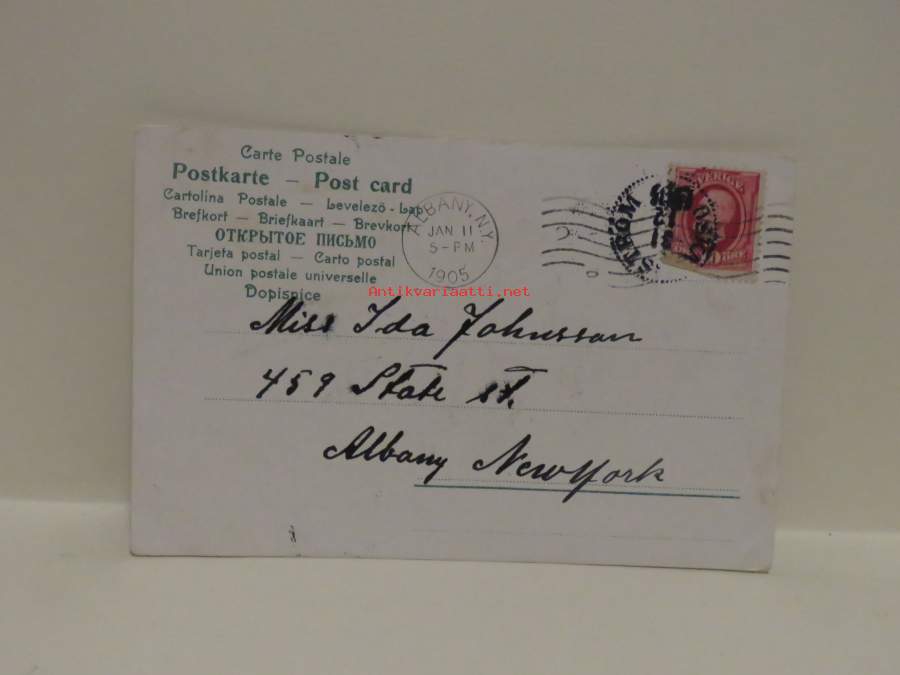 Carte Postale
Postkarte — Post card
Cartolina Postale — Levelező-Lap
Brefkort — Briefkaart — Brevkort
ОТКРЫТОЕ ПИСЬМО
Tarjeta postal — Carto postal
Union postale universelle
Dopisnice
ALBANY, N.Y.
JAN 11
5-PM
1905
SVERIGE
Antikvariaatti.net
Miss Ida Johnsson
459 State st.
Albany New York